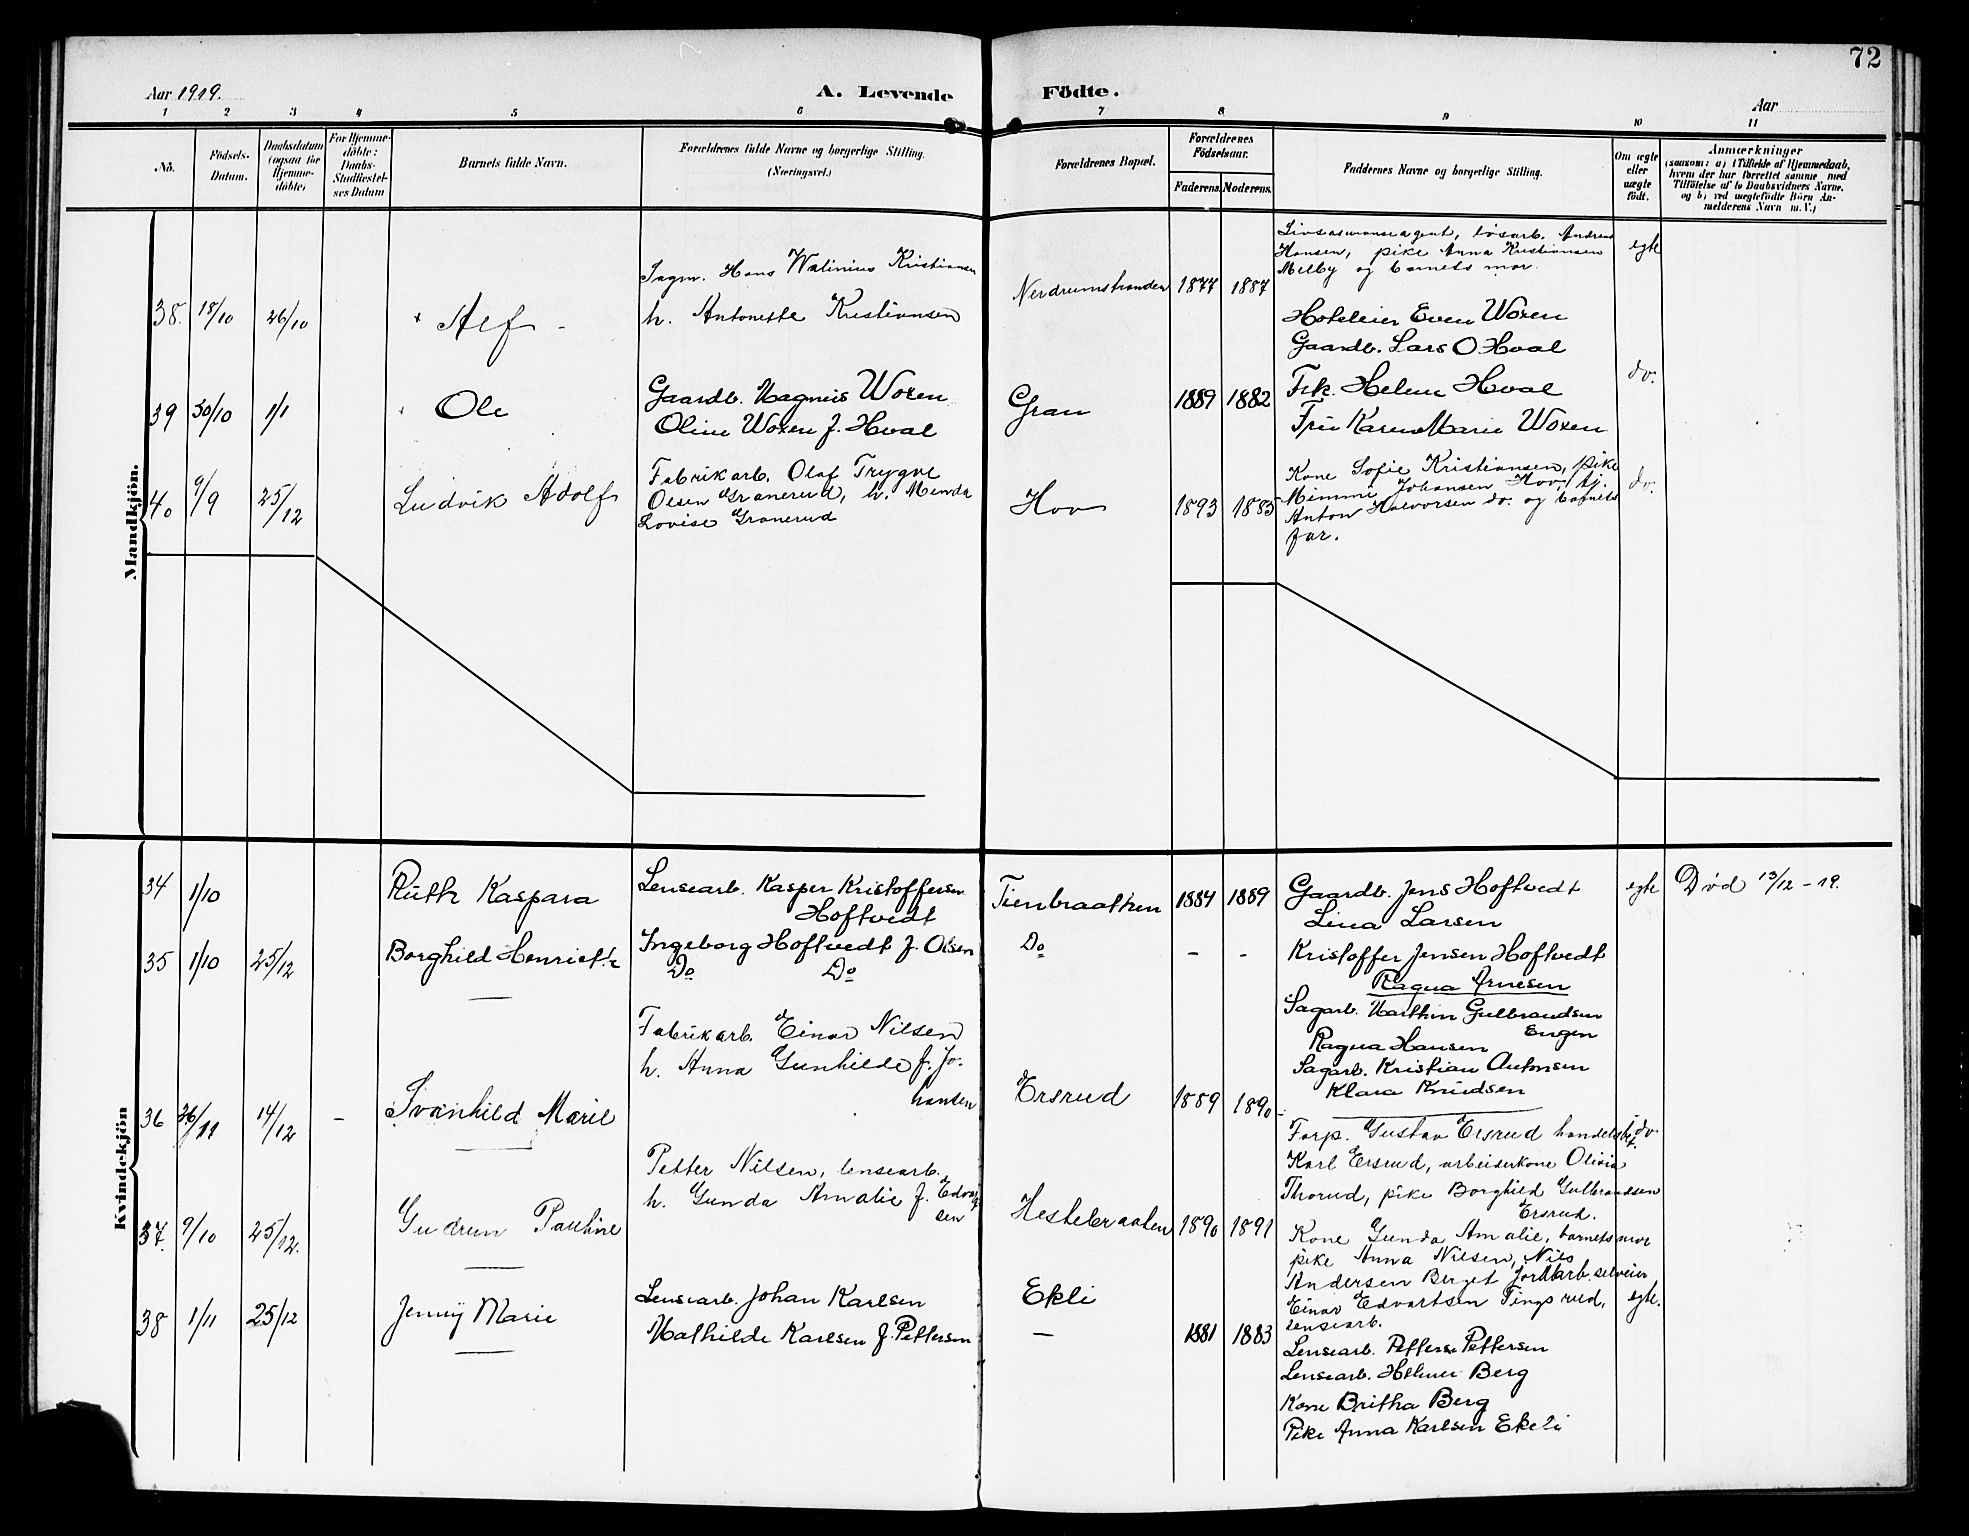 72
Aar 1919.
A. Levende Födte.
Aar
1 2 3 4 5 6 7 8 9 10 11
Nö.
Födsels-
Datum.
Daabsdatum
(ogsaa for
Hjemme-
döbte)
For Hjemme-
döbte:
Daabs-
Stadfæstel-
ses Datum
Barnets fulde Navn.
Forældrenes fulde Navne og borgerlige Stilling.
(Næringsvei.)
Forældrenes Bopæl.
Forældrenes
Födselsaar.
Faderens. Moderens.
Faddernes Navne og borgerlige Stilling.
Om ægte
eller
uægte
födt.
Anmærkninger
(saasom: a) i Tilfælde af Hjemmedaab,
hvem der har forrettet samme med
Tilföielse af to Daabsvidners Navne.
og b) ved uægtefödte Börn An-
melderens Navn m.V.)
Mandkjön.
38. 18/10 26/10
Alf
Sagm. Hans Walinius Kristiansen
h. Antonette Kristiansen
Nerdrumstranden
1877 1887
Livsassuranseagent, løsarb. Andreas
Hansen, pike Anna Kristiansen
Melby og barnets mor.
egte
39 30/10 1/1
Ole
Gaardb. Magnus Woxen
Oline Woxen f. Hval
Gran
1889 1882
Hoteleier Even Woxen
Gaardb. Lars O Hval
Frk. Helene Hval
Fru Karen Marie Woxen
do.
40 9/9 25/12
Ludvik Adolf
Fabrikarb. Olaf Trygve
Olsen Granerud, h. Minda
Lovise Granerud
Hov
1893 1885
Kone Sofie Kristiansen, pike
Mimmi Johansen Hov, tj.
Anton Halvorsen do. og barnets
far.
do.
Kvindekjön
34 1/10
Ruth Kaspara
Lensearb. Kasper Kristoffersen
Hoftvedt
Ingeborg Hoftvedt f. Olsen
Tienbraathen
1884 1889
Gaardb. Jens Hoftvedt
Lina Larsen
egte
Død 13/12 - 19.
35 1/10 25/12
Borghild Henriette
Do Do
Do
- -
Kristoffer Jensen Hoftvedt
Ragna Arnesen
Sagarb. Marthin Gulbrandsen
Engen
Ragna Hansen
Sagarb. Kristian Antonsen
Klara Knudsen
36 26/11 14/12 -
Svanhild Marie
Fabrikarb. Einar Nilsen
h. Anna Gunhilde f. Jo-
hansen
Ersrud
1889 1890
Forp. Gustav Ersrud handelsbet.
Karl Ersrud, arbeiderkone Olivia
Thorud, pike Borghild Gulbrandsen
Ersrud.
do.
37. 9/10 25/12.
Gudrun Pauline
Petter Nilsen, lensearb.
h. Gunda Amalie f. Edvart
sen
Hestebraaten
1890 1891
Kone Gunda Amalie, barnets mor
pike Anna Nilsen, Nils
Andersen Berget jordarb. selveier
Einar Edvartsen Tingsrud,
lensearb.
egte.
38 1/11 25/12
Jenny Marie
Lensearb. Johan Karlsen
Mathilde Karlsen f. Pettersen
Ekli
—
1881 1883
Lensearb. Petters Pettersen
Lensearb. Helmer Berg
Kone Britha Berg
Pike Anna Karlsen Ekeli